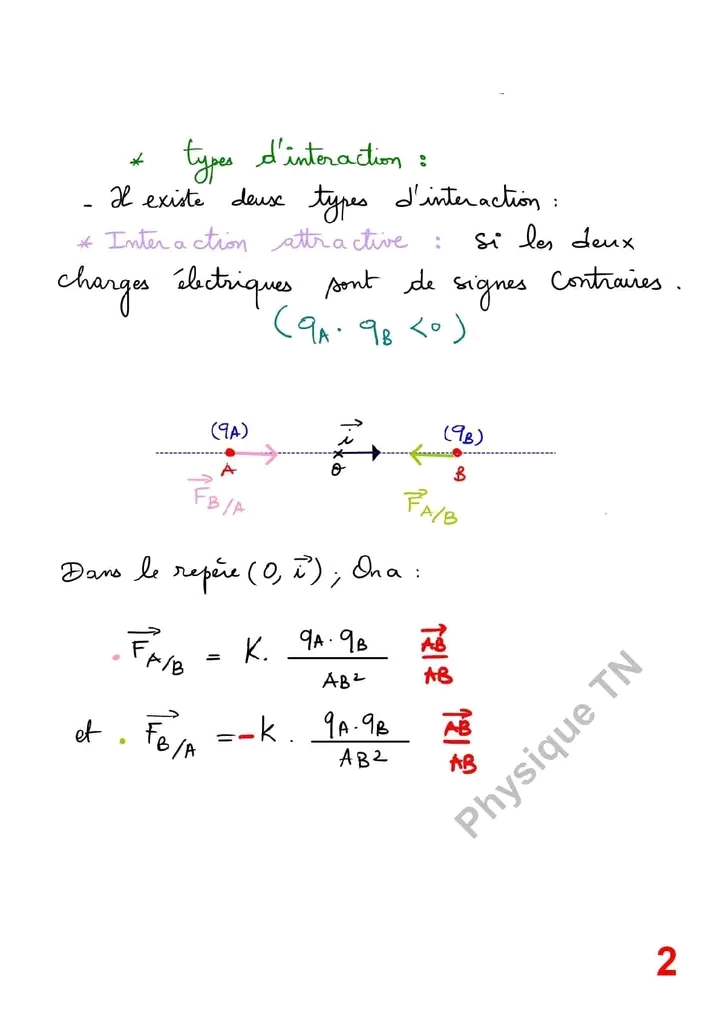 * types d'interaction :
- Il existe deux types d'interaction :
* Interaction attractive : si les deux
charges électriques sont de signes contraires .
(qA . qB <0)
(qA) i (qB)
A O B
FB/A FA/B
Dans le repère (O, i) ; On a :
. FA/B = K. qA . qB / AB² AB / AB
et . FB/A = -K . qA . qB / AB² AB / AB
Physique TN
2